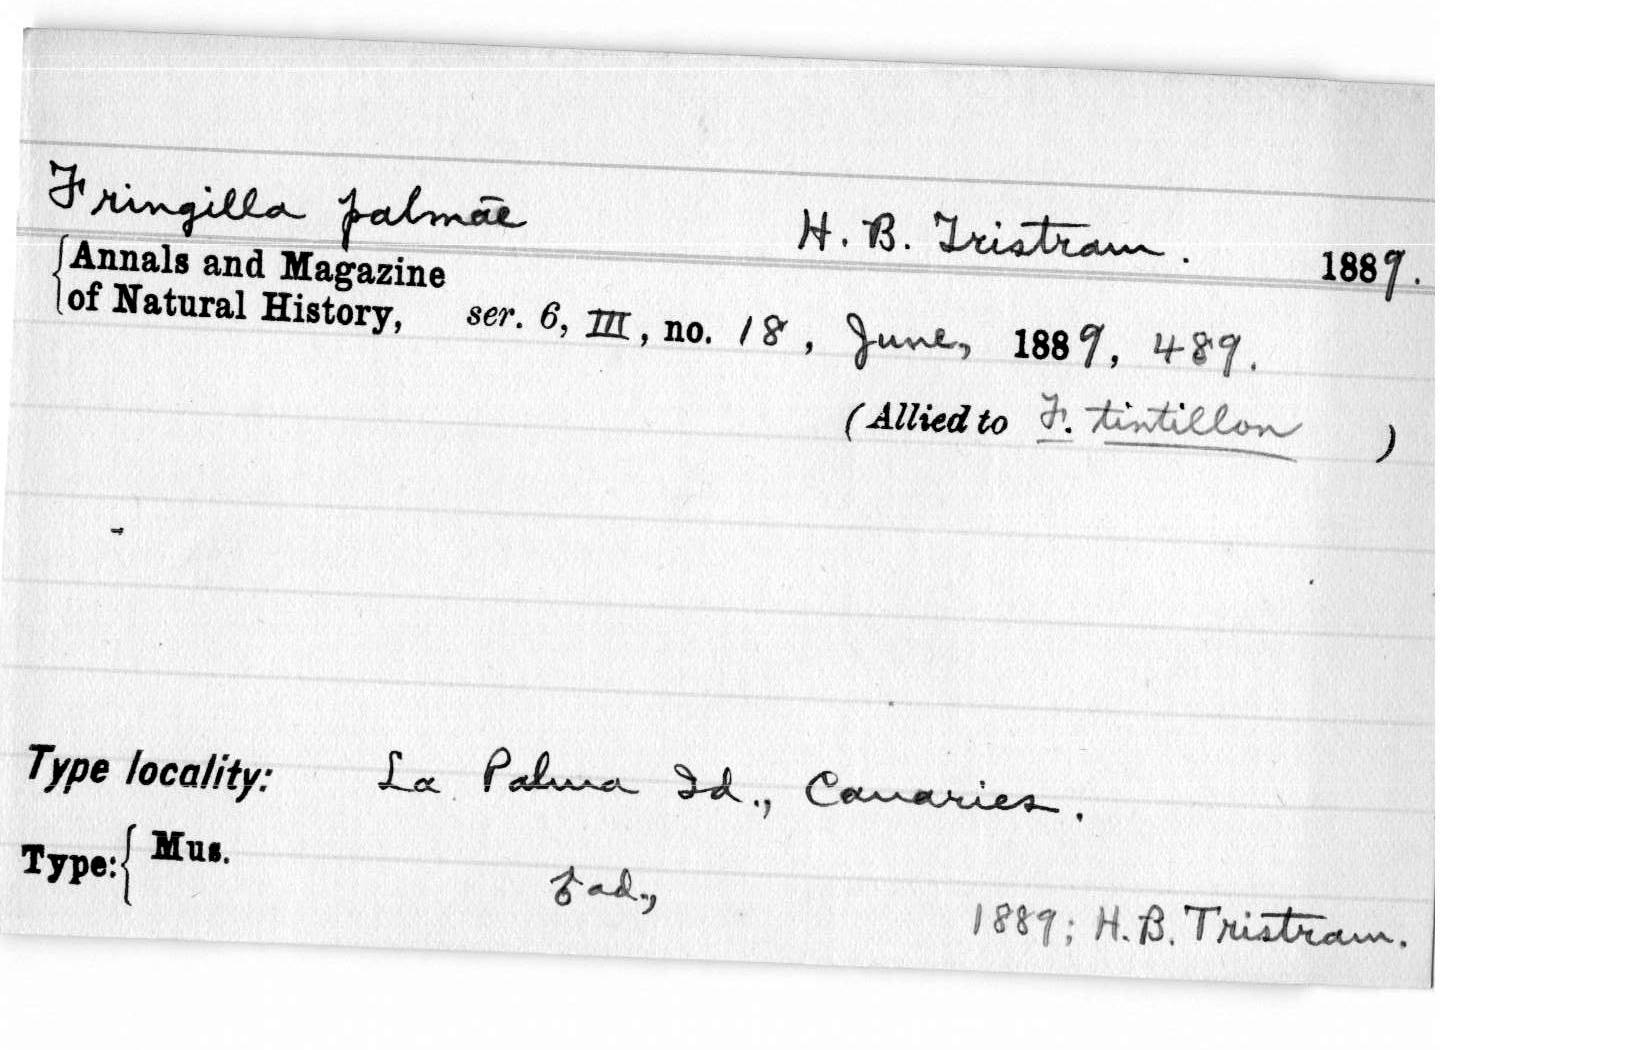 Fringilla palmae H. B. Tristram. 1889.
{Annals and Magazine
of Natural History, ser. 6, III, no. 18, June, 1889, 489.
(Allied to F. tintillon )
Type locality: La Palma Id., Canaries.
Type:{ Mus.
ad., 1889; H. B. Tristram.